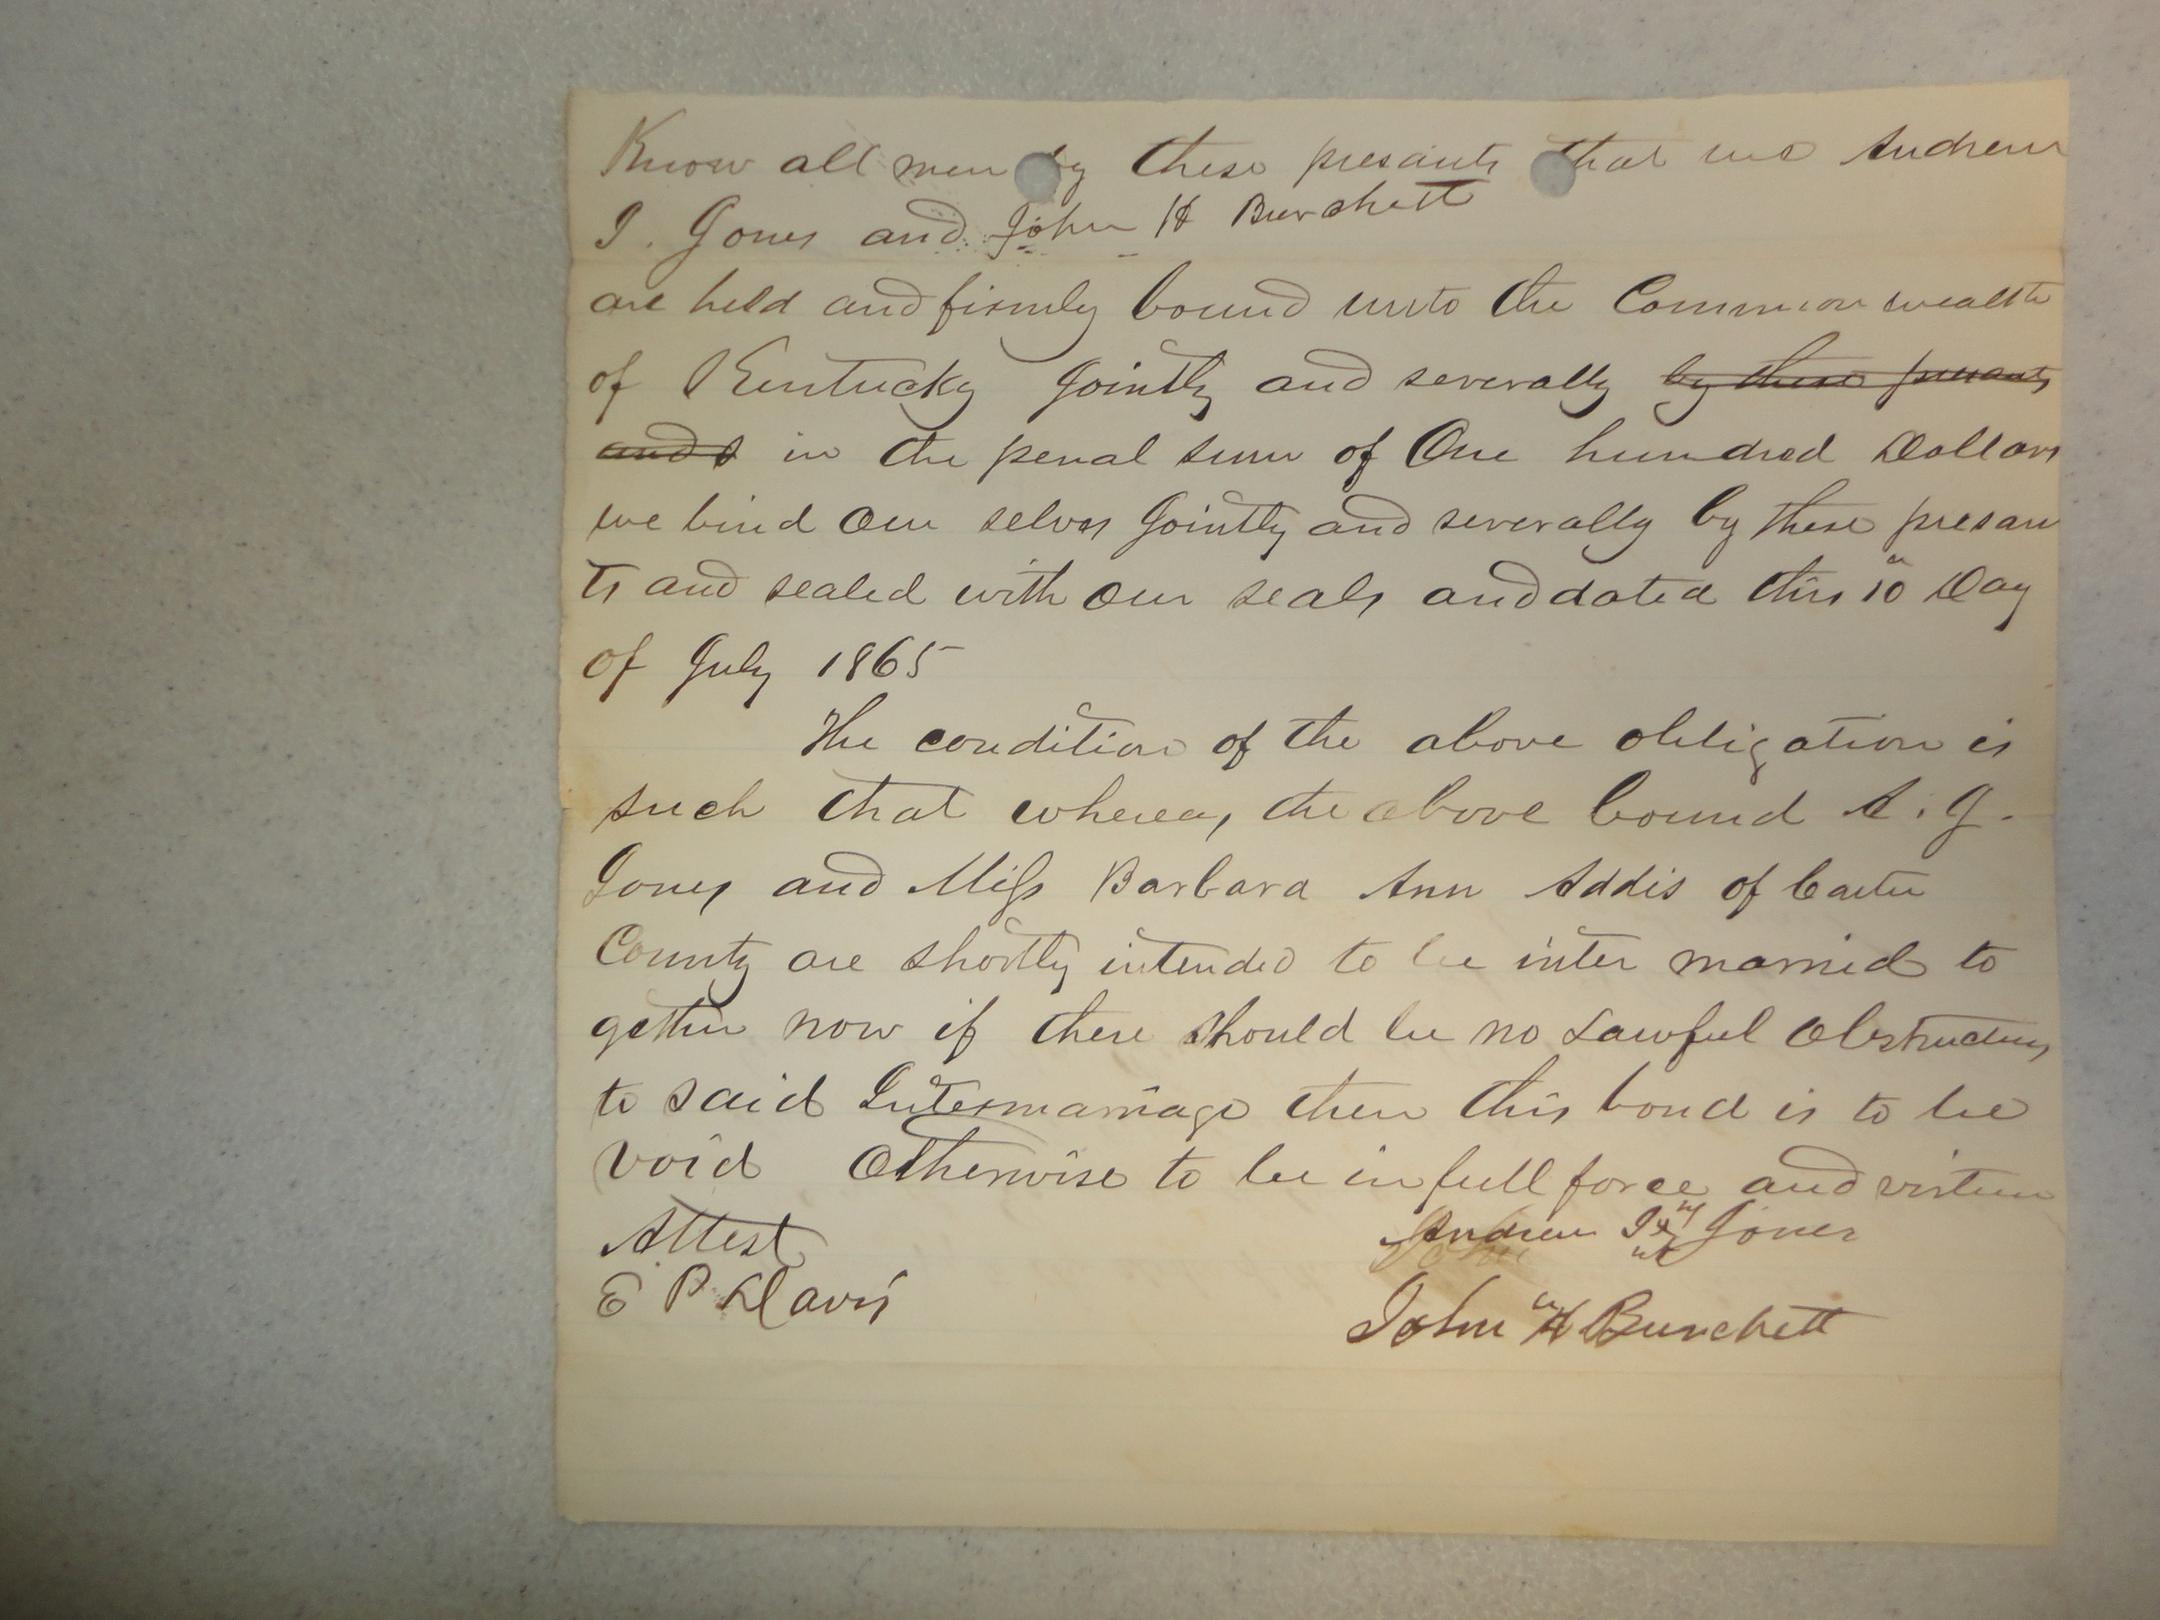 Know all men by these presants that we Andrew
J. Jones and John H Burchett
are held and firmly bound unto the Common wealth
of Kentucky Jointly and severally by these presants
and s in the penal sum of One hundred Dollars
we bind our selves Jointly and severally by these presan
ts and sealed with our seals and dated this 10 Day
of July 1865
The condition of the above obligation is
such that whereas the above bound A. J.
Jones and Miss Barbara Ann Addis of Carter
County are shortly intended to be inter married to
gether now if there should be no Lawful Obstructions
to said Intermarriage then this bond is to be
void Otherwise to be in full force and virtue
Attest
Andrew J x Jones
E P Davis
John H Burchett